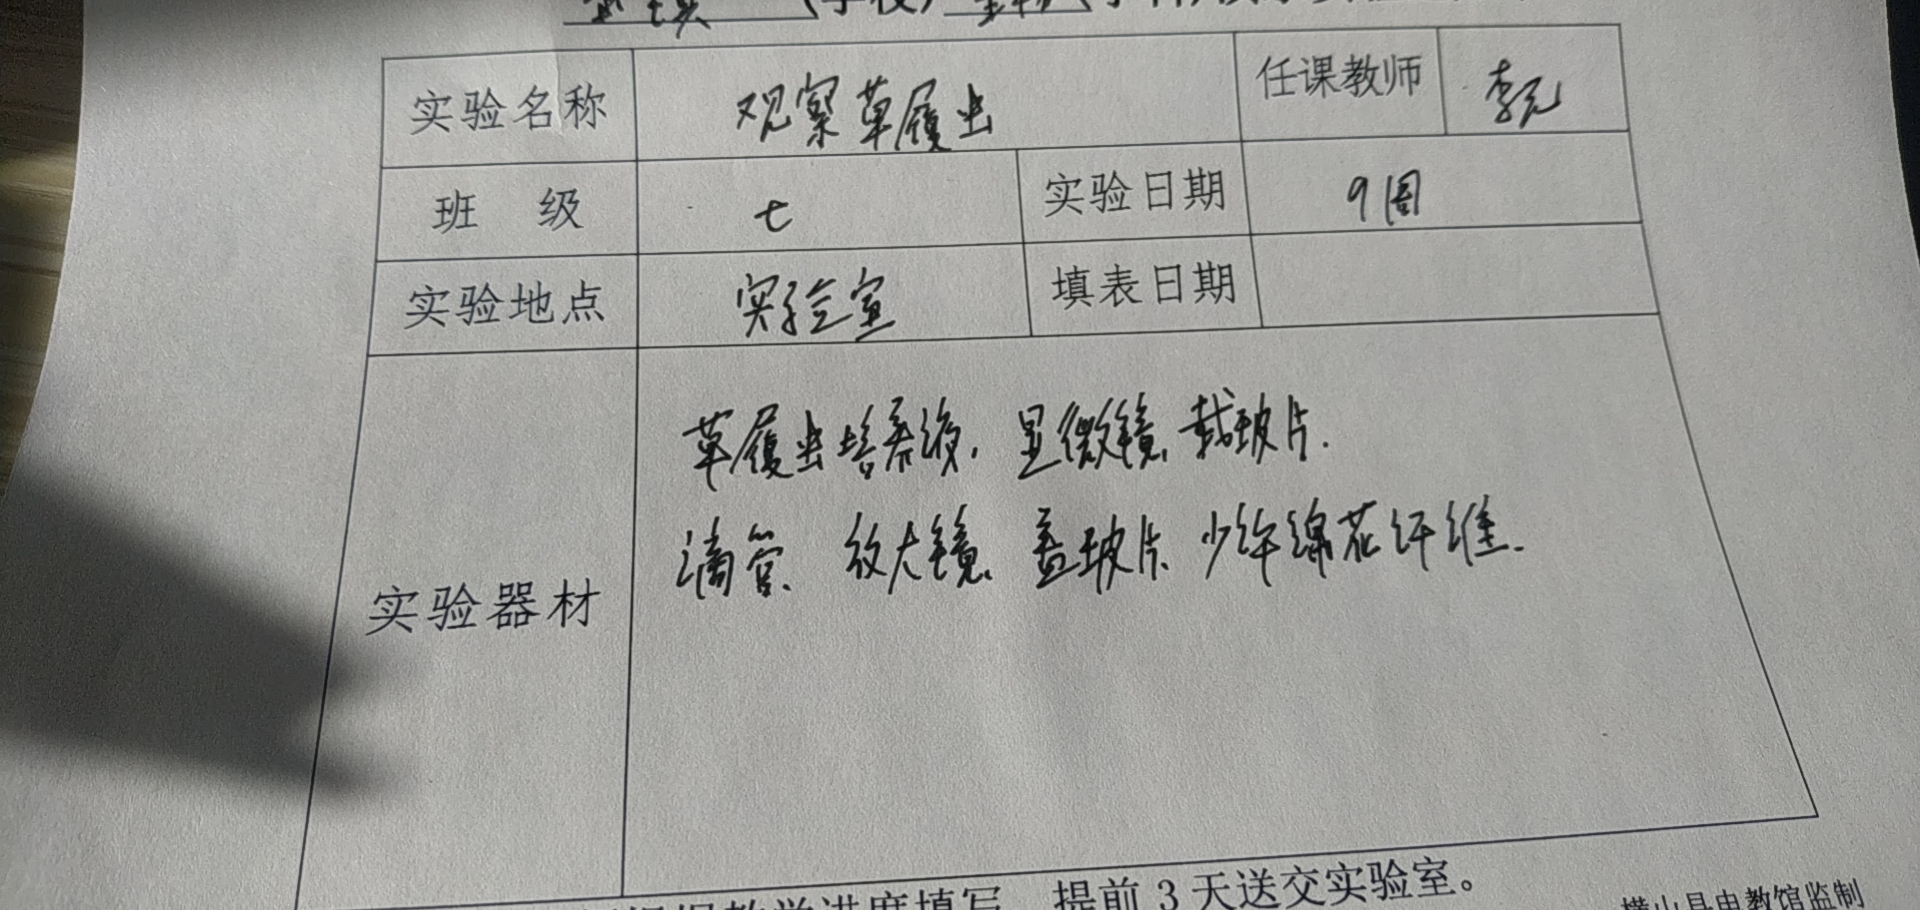 (学校)
实验名称 观察草履虫 任课教师 李元
班 级 七 实验日期 9周
实验地点 实验室 填表日期
实验器材
草履虫培养液、显微镜、载玻片、
滴管、放大镜、盖玻片、少许绵花纤维.
教学进度填写 提前3天送交实验室。
横山县电教馆监制